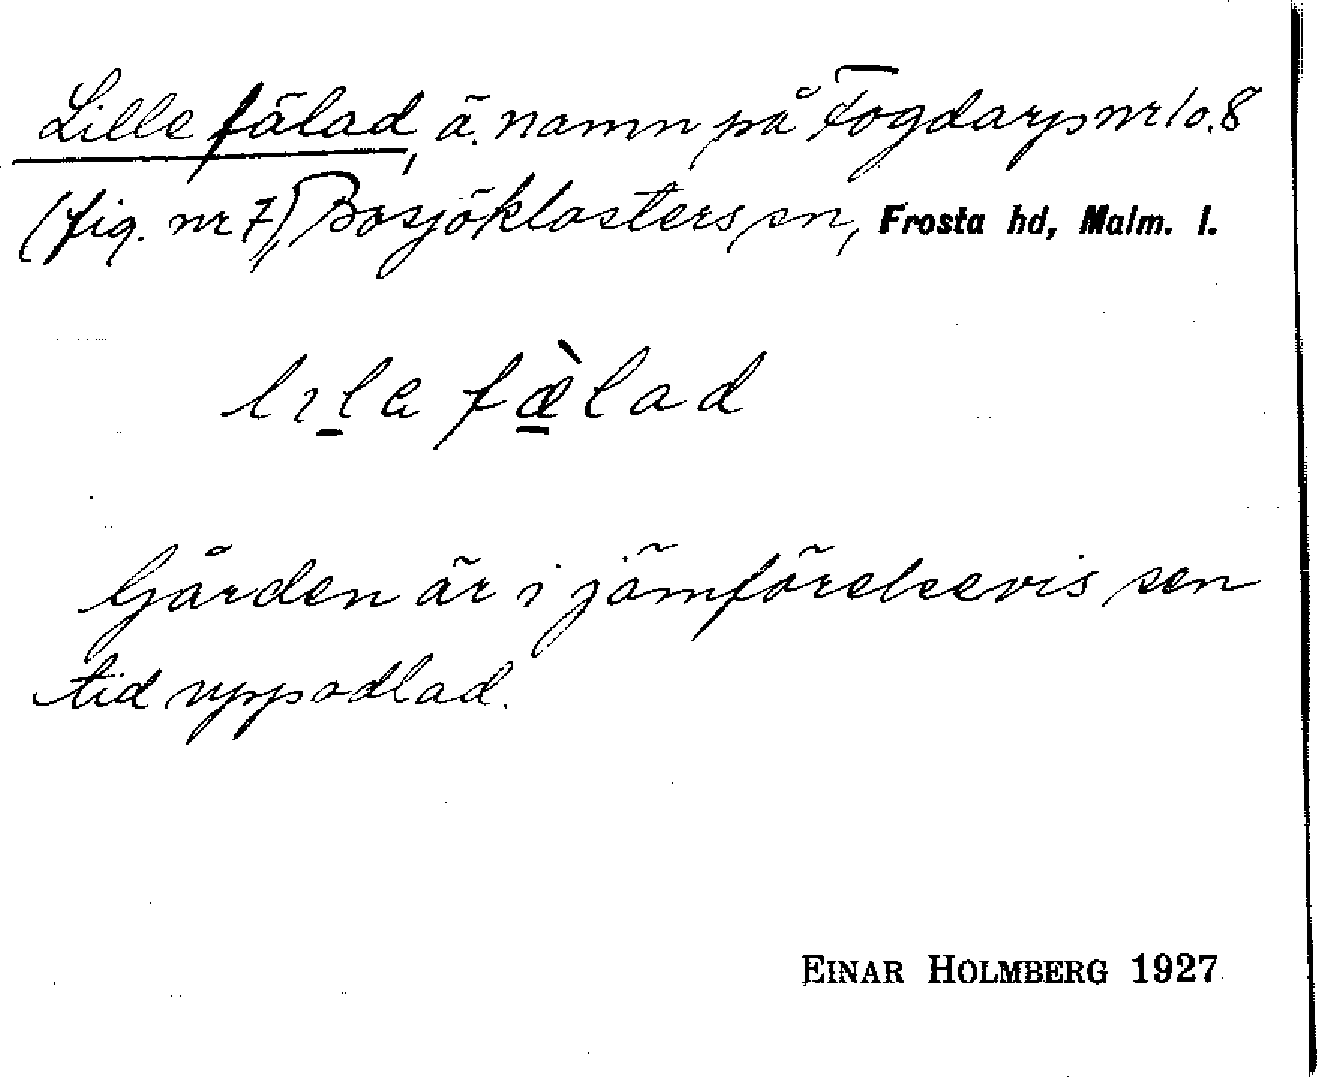 Lille fälad, ä. namn på Fogdarp nr 10.8
(fig. nr 7), Bosjöklosters sn, Frosta hd, Malm. l.
lıla fæ̀lad
Gården är i jämförelsevis sen
tid uppodlad.
EINAR HOLMBERG 1927